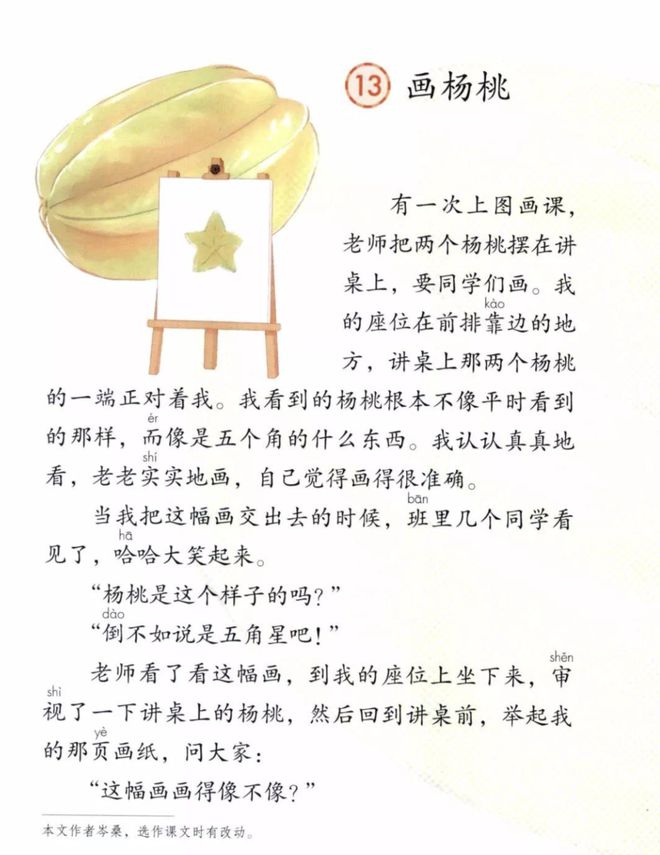 13 画杨桃
有一次上图画课，
老师把两个杨桃摆在讲
桌上，要同学们画。我
kào
的座位在前排靠边的地
方，讲桌上那两个杨桃
的一端正对着我。我看到的杨桃根本不像平时看到
ér
的那样，而像是五个角的什么东西。我认认真真地
shí
看，老老实实地画，自己觉得画得很准确。
bān
当我把这幅画交出去的时候，班里几个同学看
hā
见了，哈哈大笑起来。
“杨桃是这个样子的吗？”
dào
“倒不如说是五角星吧！”
shěn
老师看了看这幅画，到我的座位上坐下来，审
shì
视了一下讲桌上的杨桃，然后回到讲桌前，举起我
yè
的那页画纸，问大家：
“这幅画画得像不像？”
本文作者岑桑，选作课文时有改动。